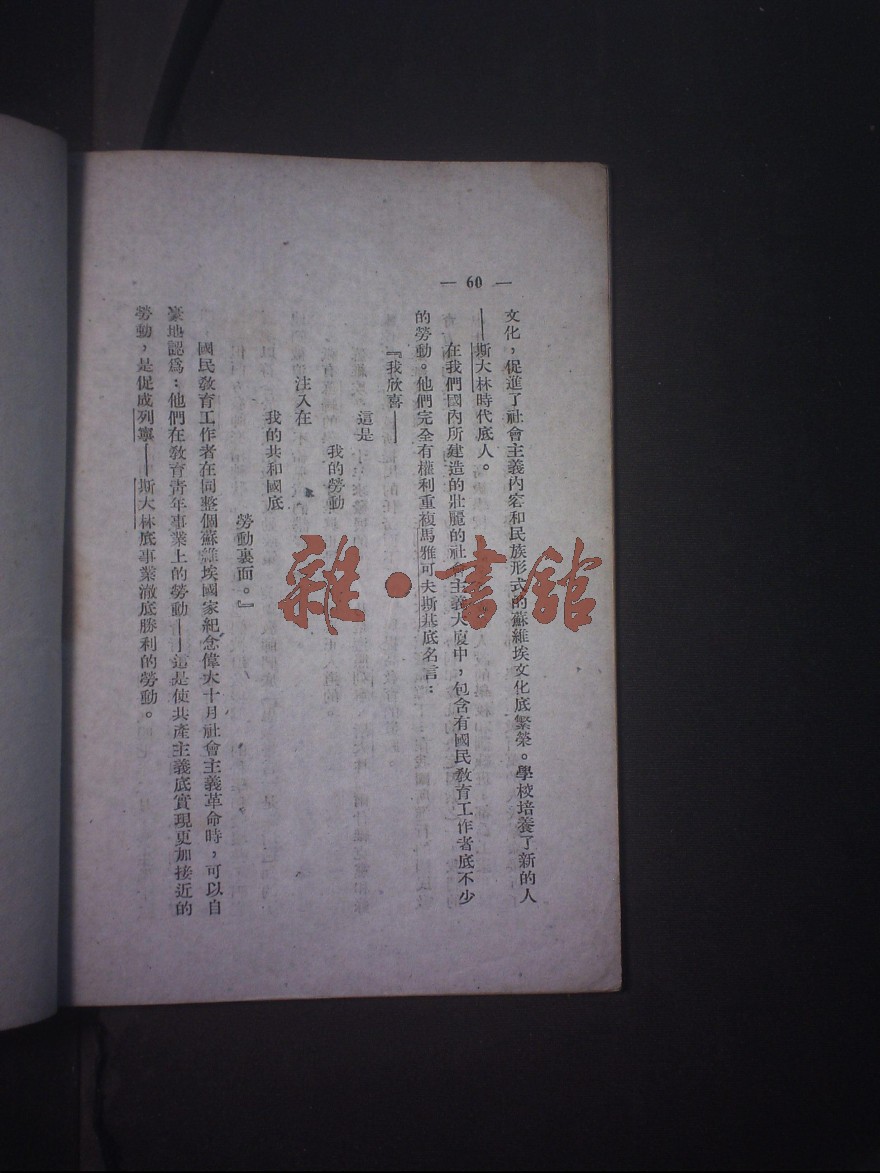 — 60 —
文化，促進了社會主義內容和民族形式的蘇維埃文化底繁榮。學校培養了新的人
——斯大林時代底人。
在我們國內所建造的壯麗的社會主義大廈中，包含有國民敎育工作者底不少
的勞動。他們完全有權利重複馬雅可夫斯基底名言：
『我欣喜——
這是
我的勞動
注入在
我的共和國底
勞動裏面。』
國民敎育工作者在同整個蘇維埃國家紀念偉大十月社會主義革命時，可以自
豪地認爲：他們在敎育靑年事業上的勞動——這是使共產主義底實現更加接近的
勞動，是促成列寧——斯大林底事業澈底勝利的勞動。
雜·書館